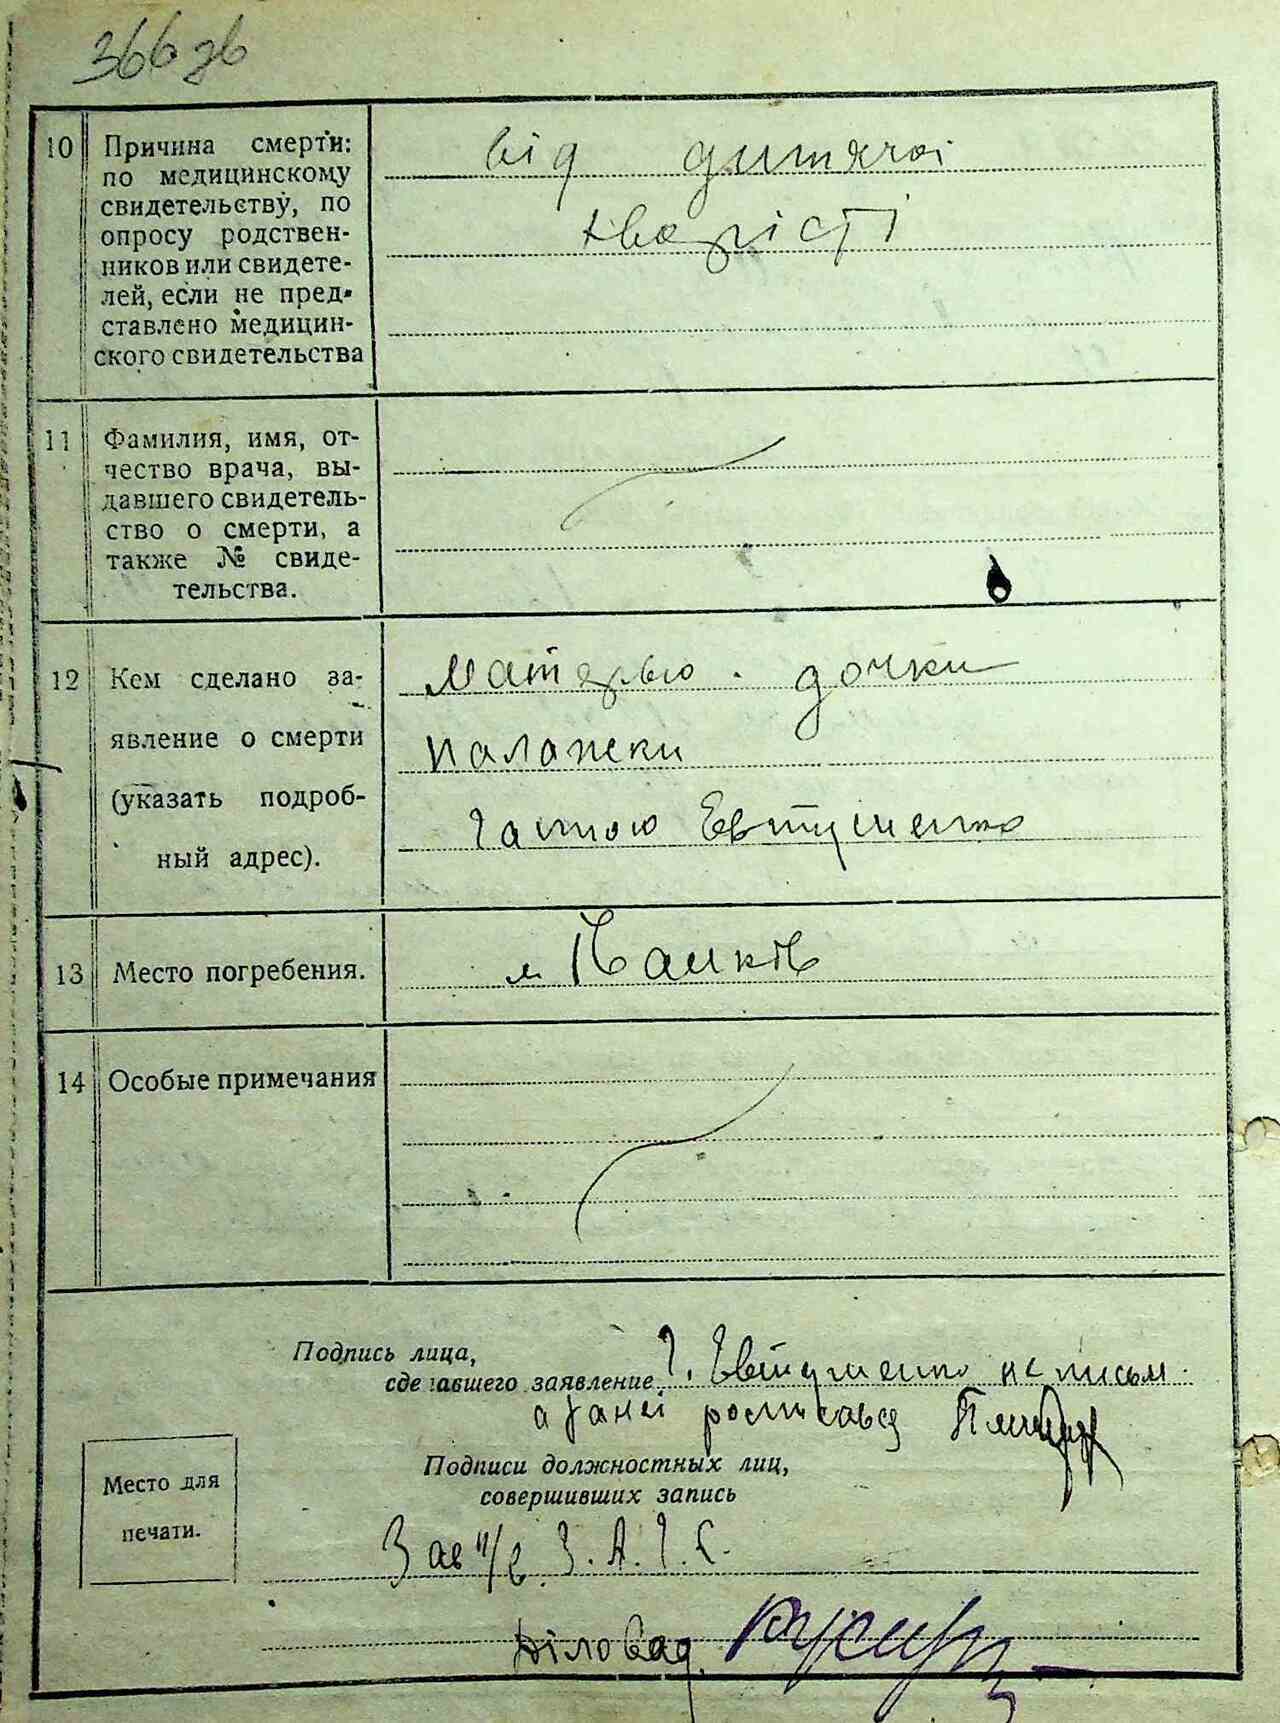 366 зв
10 Причина смерти:
по медицинскому
свидетельству, по
опросу родствен-
ников или свидете-
лей, если не пред-
ставлено медицин-
ского свидетельства
від дитячої
хворісті
11 Фамилия, имя, от-
чество врача, вы-
давшего свидетель-
ство о смерти, а
также № свиде-
тельства.
12 Кем сделано за-
явление о смерти
(указать подроб-
ный адрес).
Матерью дочки
палажки
Евтушенко
13 Место погребения.
м
14 Особые примечания
Подпись лица,
сделавшего заявление Г. Евтушенко не письм
а за неї росписавсь
Подписи должностных лиц,
совершивших запись
Место для
печати.
Зав п/в З.А.Г.С.
Діловод